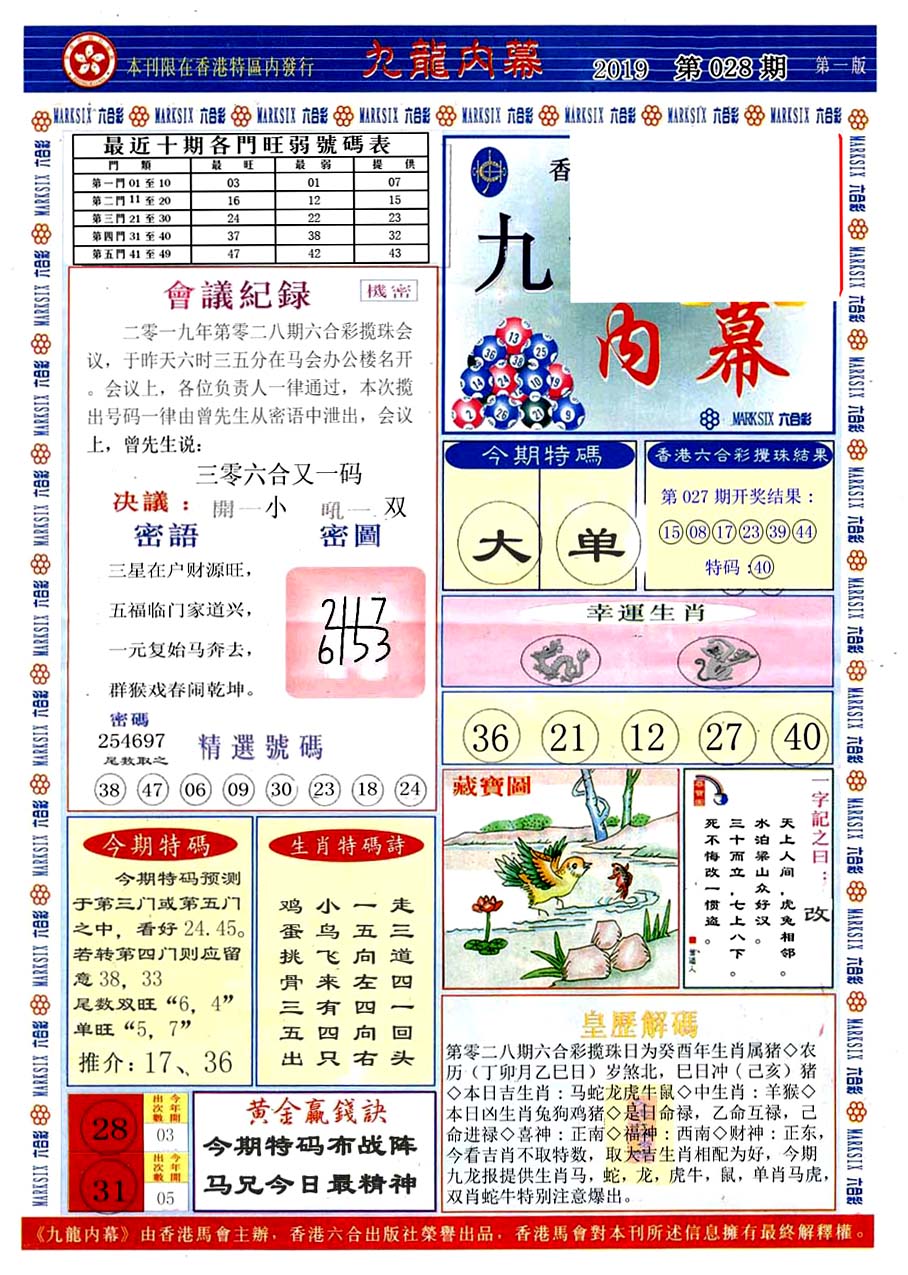 本刊限在香港特區內發行
九龍内幕
2019 第028期
第一版
MARKSIX 六合彩
最近十期各門旺弱號碼表
門 類 最 旺 最 弱 提 供
第一門 01 至 10 03 01 07
第二門 11 至 20 16 12 15
第三門 21 至 30 24 22 23
第四門 31 至 40 37 38 32
第五門 41 至 49 47 42 43
會議紀録 機密
二零一九年第零二八期六合彩揽珠会
议，于昨天六时三五分在马会办公楼名开
。会议上，各位负责人一律通过，本次揽
出号码一律由曾先生从密语中泄出，会议
上，曾先生说：
三零六合又一码
决議： 開一小 吼一双
密語 密圖
三星在户财源旺，
五福临门家道兴，
一元复始马奔去，
群猴戏春闹乾坤。
2117
6153
密碼
254697
尾数取之
精選號碼
38 47 06 09 30 23 18 24
香
九
内幕
13
36 38 25
14 24 10 19
2 26 21 9
MARKSIX 六合彩
今期特碼
大 单
香港六合彩攪珠結果
第 027 期开奖结果：
15 08 17 23 39 44
特码：40
幸運生肖
36 21 12 27 40
藏寶圖
一字記之曰：改
天上人间，虎兔相邻。
水泊梁山众好汉。
三十而立，七上八下。
死不悔改一惯盗。
今期特碼
今期特码预测
于第三门或第五门
之中，看好 24.45。
若转第四门则应留
意 38，33
尾数双旺“6，4”
单旺“5，7”
推介：17、36
生肖特碼詩
鸡小一走
蛋鸟五三
挑飞向道
骨来左四
三有四一
五四向回
出只右头
28 出次數 今年開 03
31 出次數 今年開 05
黄金贏錢訣
今期特码布战阵
马兄今日最精神
皇歷解碼
第零二八期六合彩揽珠日为癸酉年生肖属猪◇农
历（丁卯月乙巳日）岁煞北，巳日冲（己亥）猪
◇本日吉生肖：马蛇龙虎牛鼠◇中生肖：羊猴◇
本日凶生肖兔狗鸡猪◇是日命禄，乙命互禄，己
命进禄◇喜神：正南◇福神：西南◇财神：正东，
今看吉肖不取特数，取大吉生肖相配为好，今期
九龙报提供生肖马，蛇，龙，虎牛，鼠，单肖马虎，
双肖蛇牛特别注意爆出。
《九龍内幕》由香港馬會主辦，香港六合出版社榮譽出品，香港馬會對本刊所述信息擁有最終解釋權。